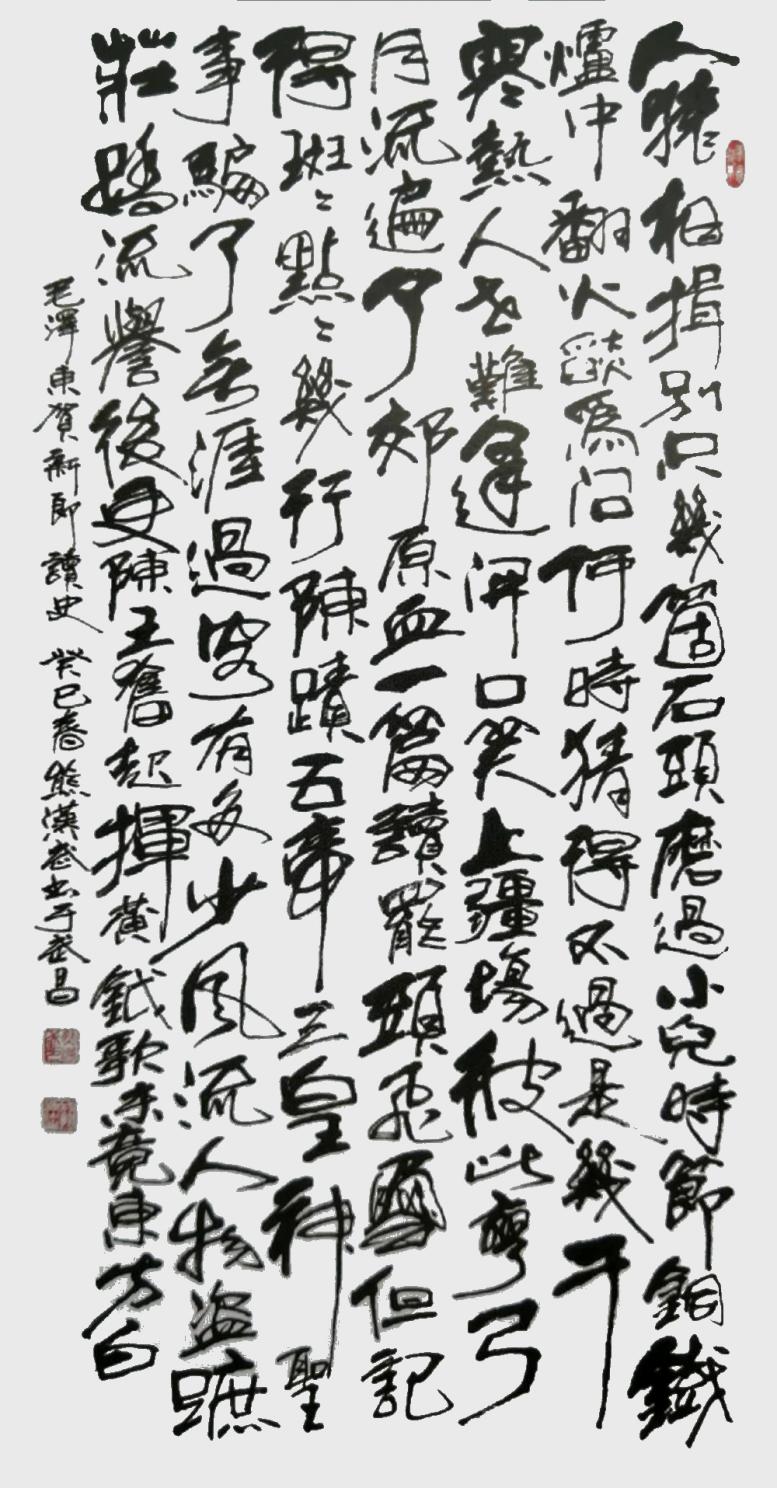 人猿相揖別只幾箇石頭磨過小兒時節銅鐵
爐中翻火燄為問何時猜得不過是幾千
寒熱人世難逢開口笑上疆場彼此彎弓
月流遍了郊原血一篇讀罷頭飛雪但記
得斑々點々幾行陳蹟五帝三皇神聖
事騙了無涯過客有多少風流人物盜蹠
莊蹻流譽後更陳王奮起揮黃鉞歌未竟東方白
毛澤東賀新郎讀史 癸巳春熊漢武書于武昌